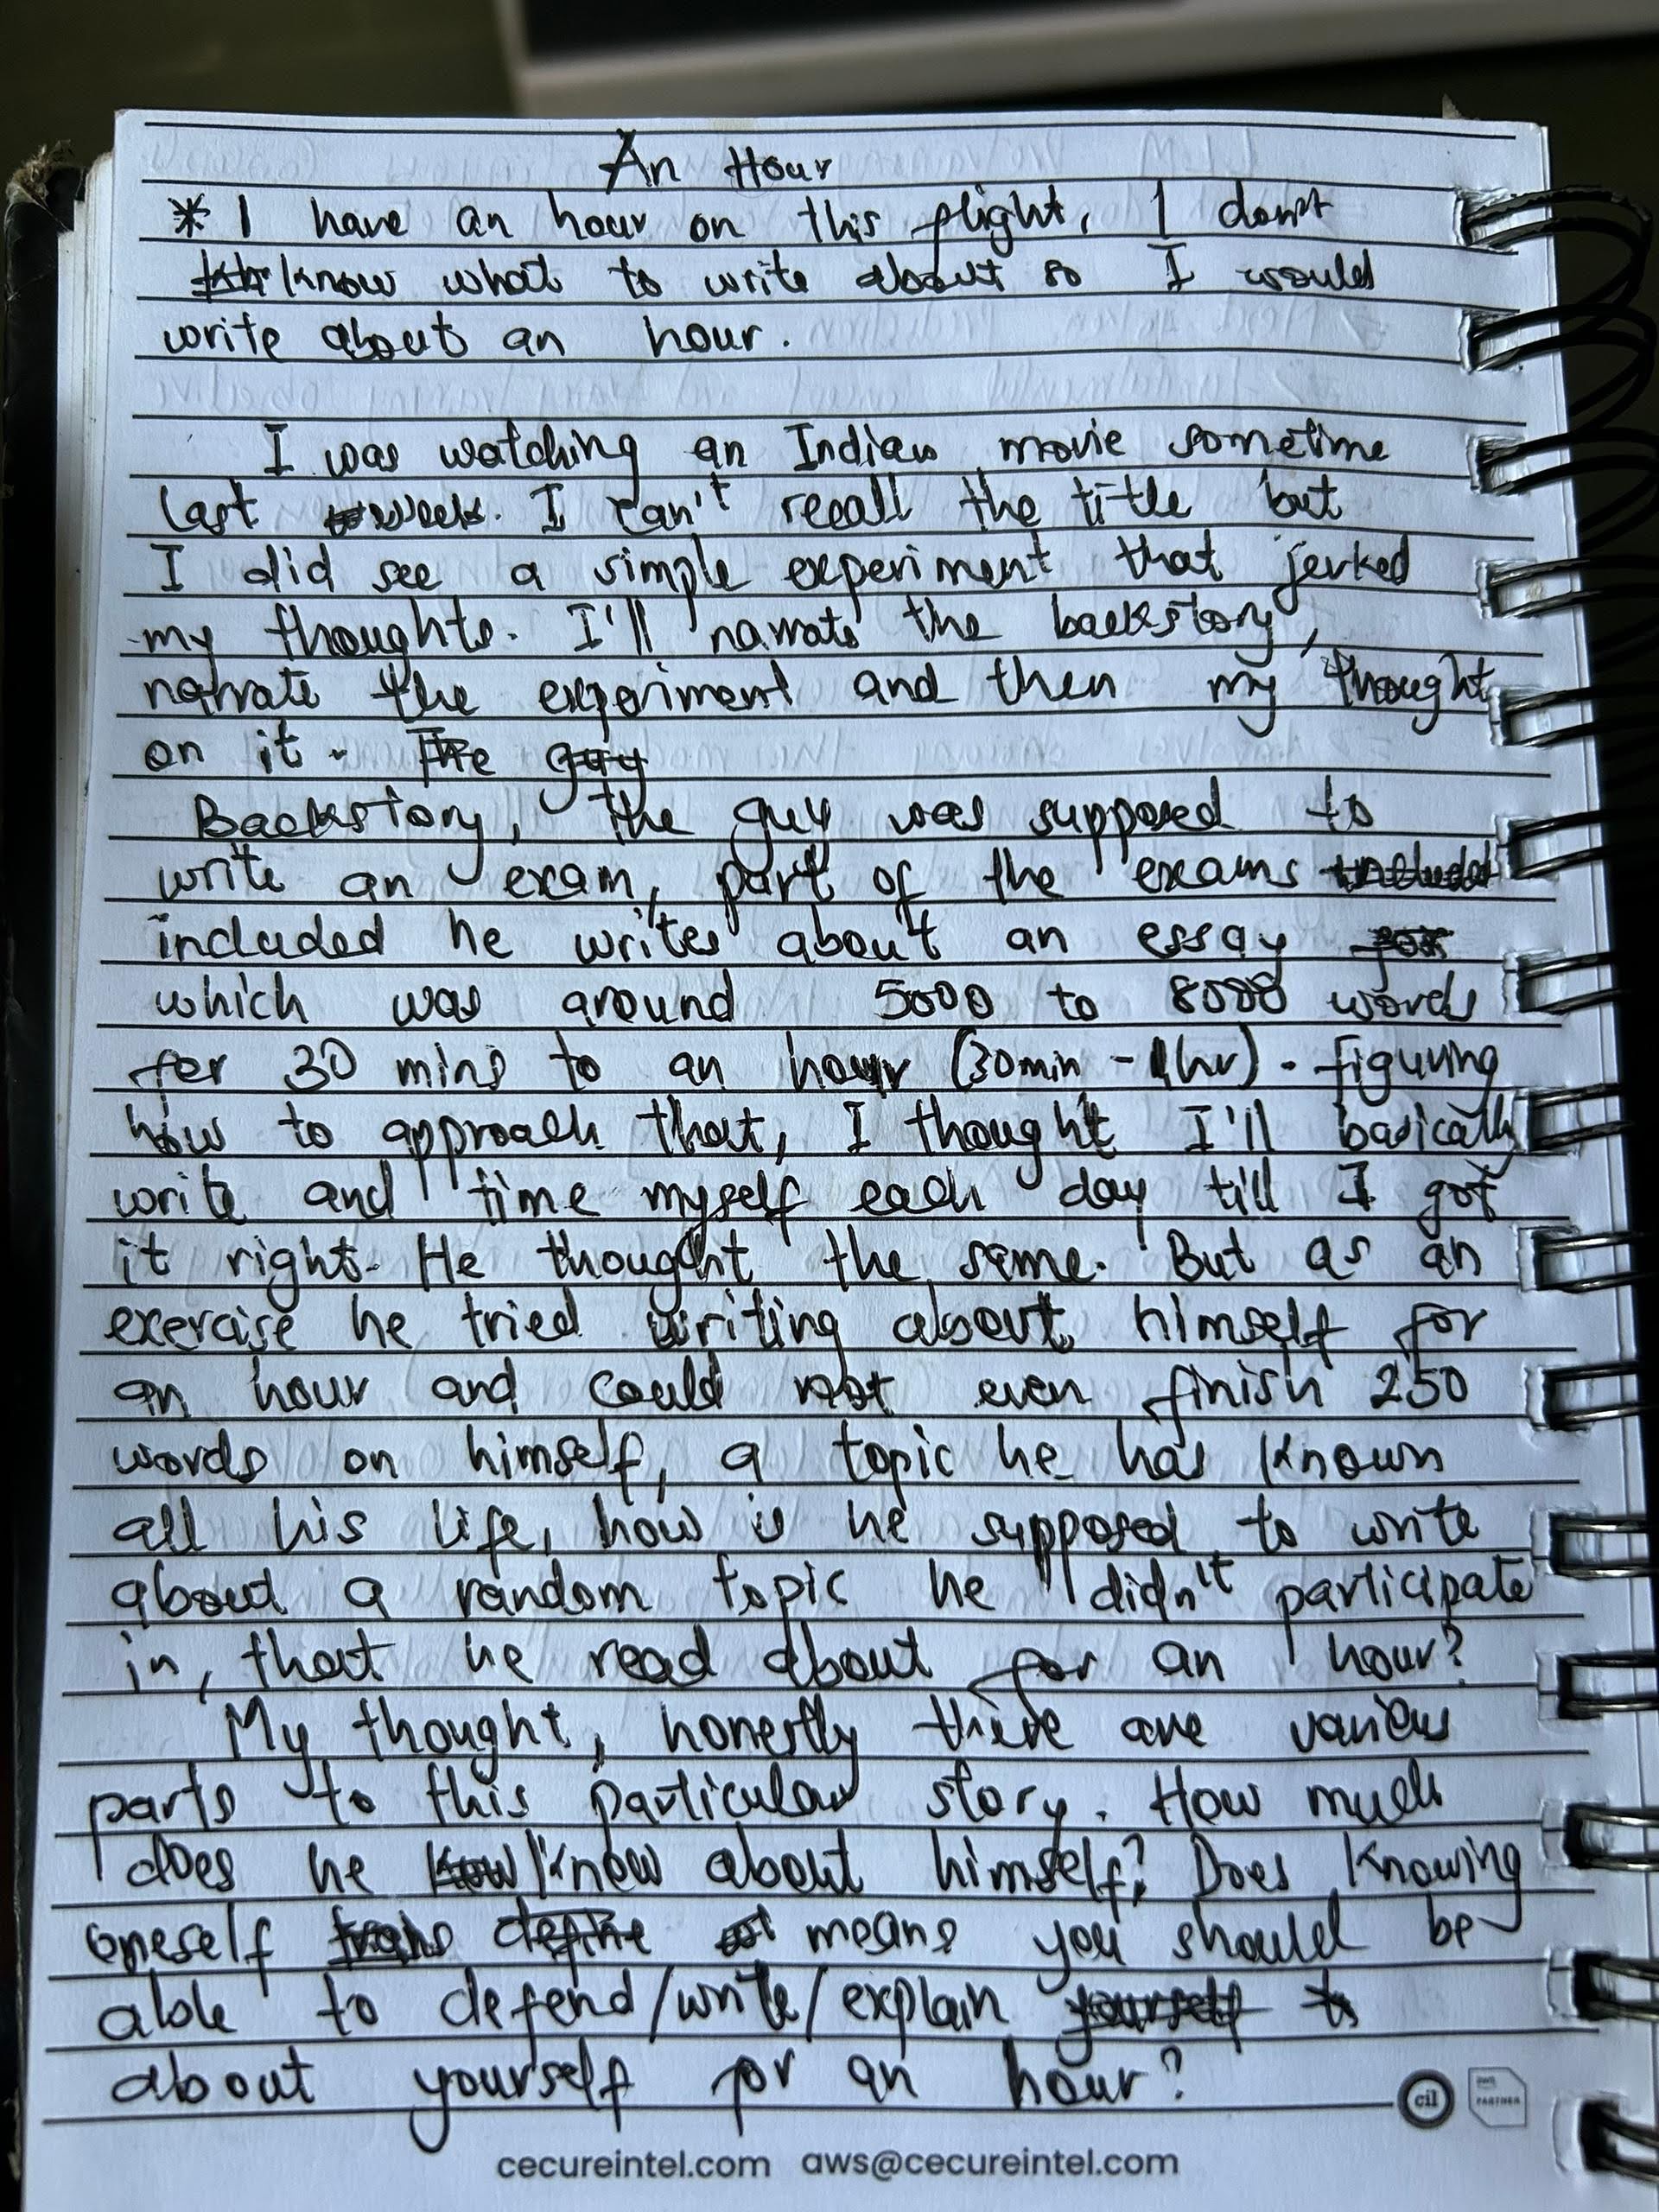 An Hour
* I have an hour on this flight, I don't
know what to write about so I would
write about an hour.
I was watching an Indian movie sometime
last week. I can't recall the title but
I did see a simple experiment that jerked
my thoughts. I'll narrate the backstory,
narrate the experiment and then my thought
on it. The guy
Backstory, the guy was supposed to
write an exam, part of the exams included
included he writes about an essay for
which was around 5000 to 8000 words
for 30 mins to an hour (30min - 1hr). figuring
how to approach that, I thought I'll basically
write and time myself each day till I got
it right. He thought the same. But as an
exercise he tried writing about himself for
an hour and could not even finish 250
words on himself, a topic he has known
all his life, how is he supposed to write
about a random topic he didn't participate
in, that he read about for an hour?
My thought, honestly there are various
parts to this particular story. How much
does he know about himself? Does knowing
oneself define means you should be
able to defend/write/explain yourself to
about yourself for an hour?
cil aws PARTNER
cecureintel.com aws@cecureintel.com